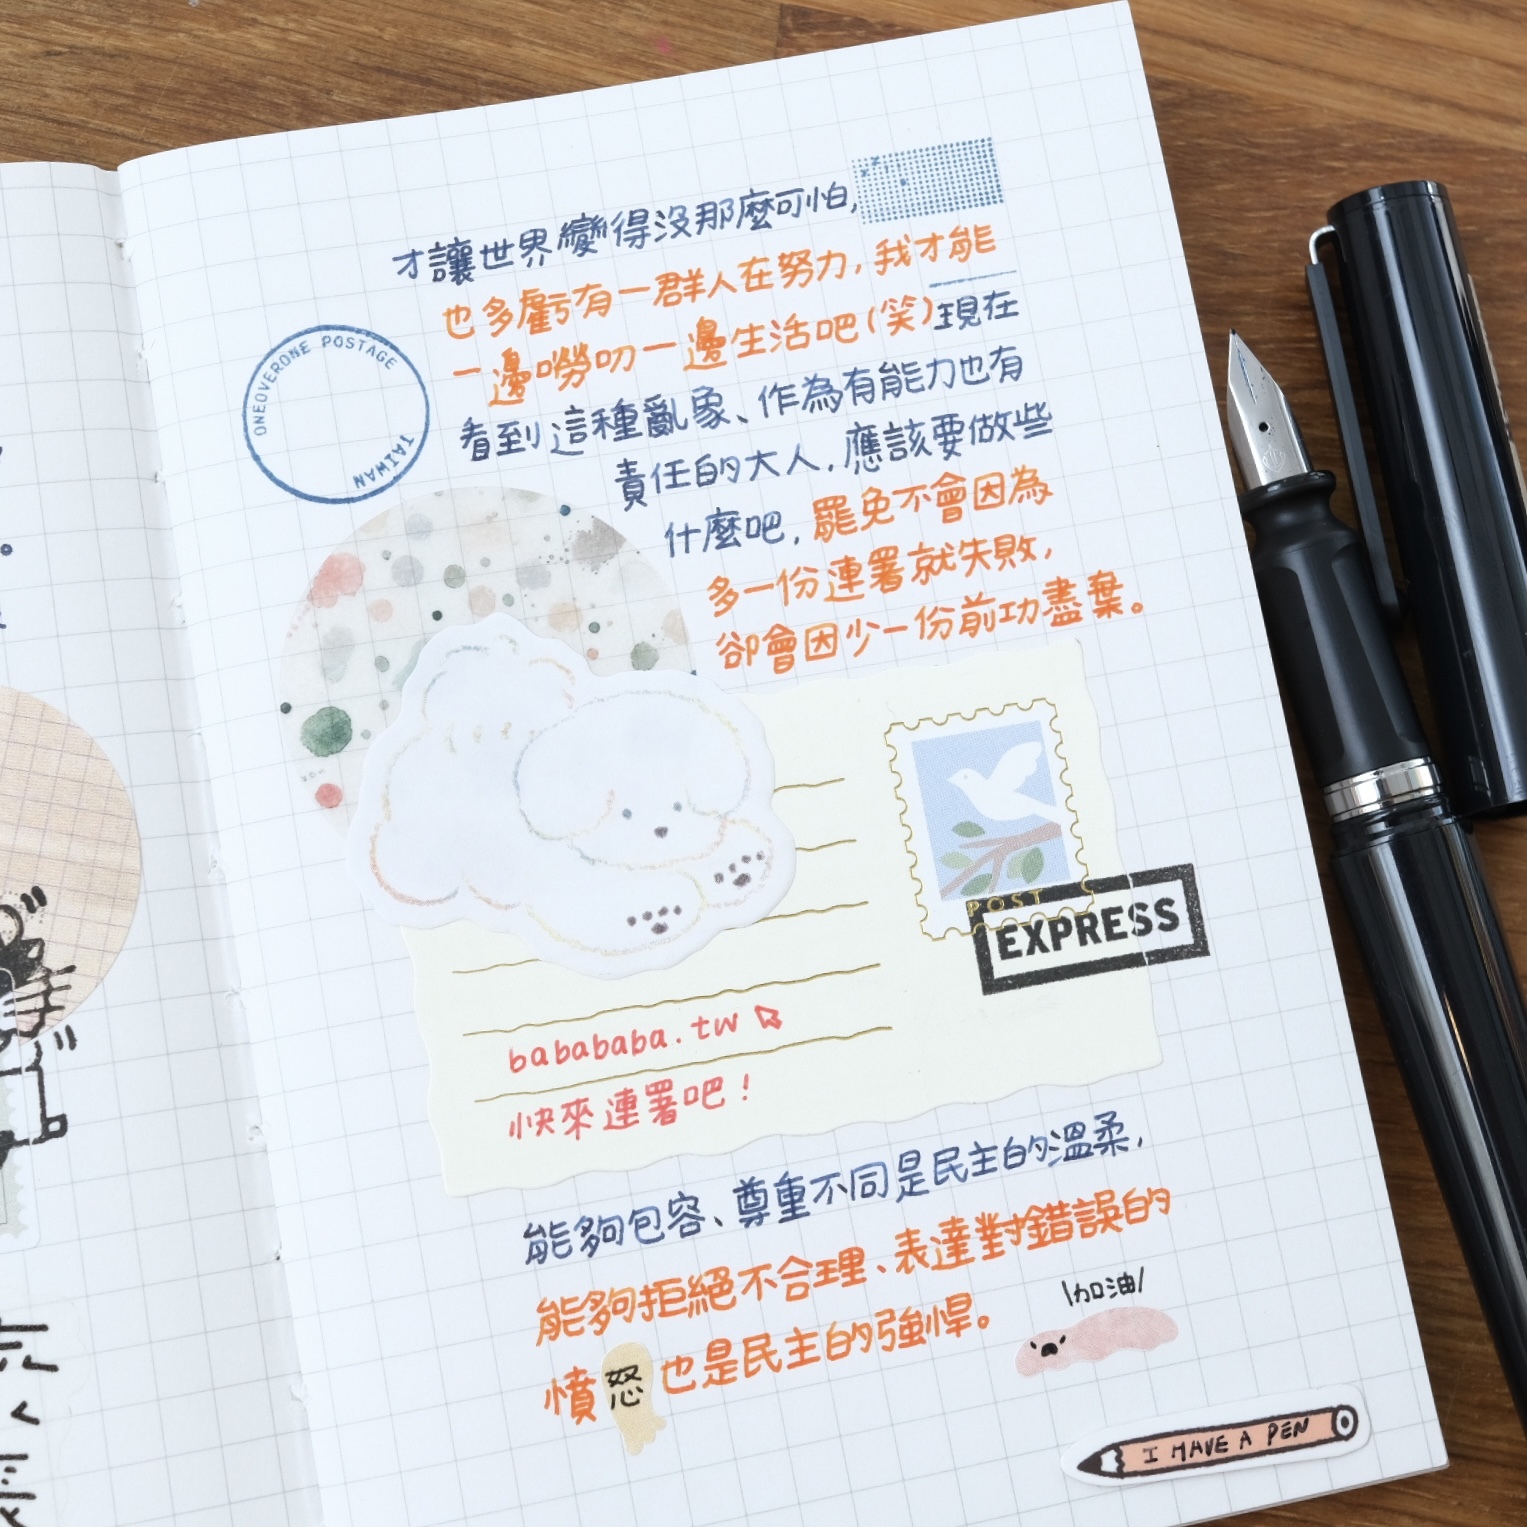 才讓世界變得沒那麼可怕,
也多虧有一群人在努力,我才能
一邊嘮叨一邊生活吧(笑)現在
看到這種亂象、作為有能力也有
責任的大人,應該要做些
什麼吧,罷免不會因為
多一份連署就失敗,
卻會因少一份前功盡棄。
ONEOVERONE POSTAGE
TAIWAN
POST
EXPRESS
babababa.tw
快來連署吧!
能夠包容、尊重不同是民主的溫柔,
能夠拒絕不合理、表達對錯誤的
憤怒也是民主的強悍。
\加油/
I HAVE A PEN